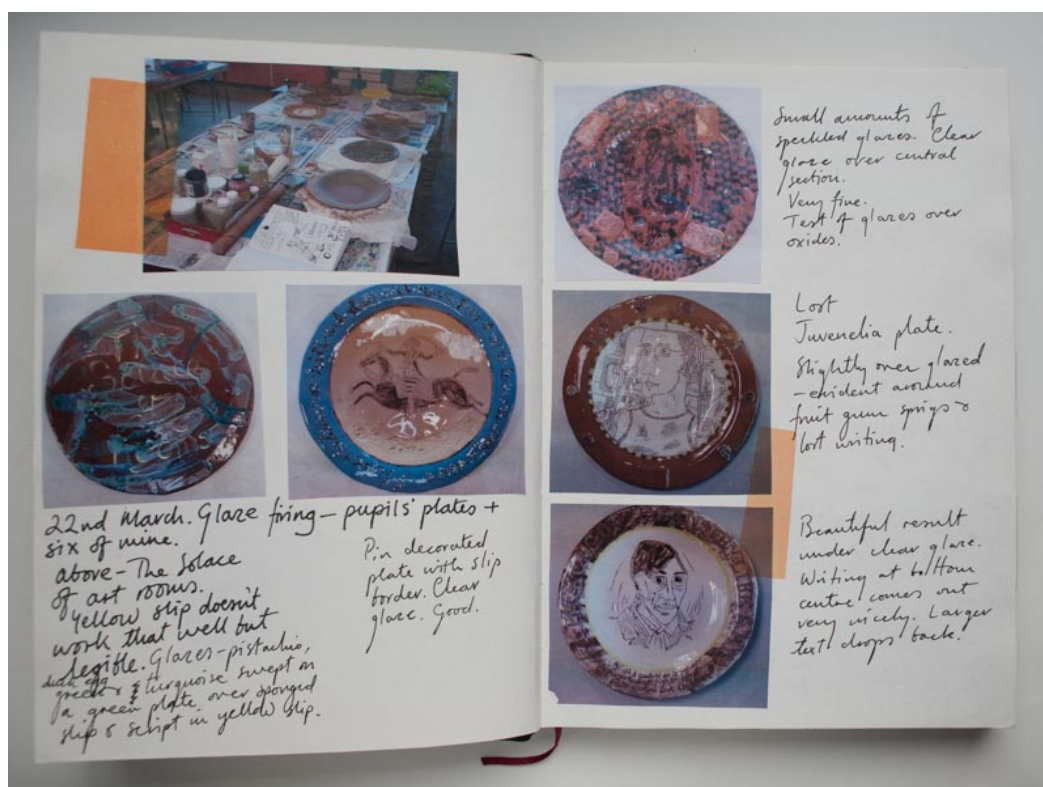 22nd March. Glaze firing – pupils' plates +
six of mine.
above – The Solace
of art rooms.
Yellow slip doesn't
work that well but
legible. Glazes – pistachio,
duck egg
green & turquoise swept on
a green plate over sponged
slip & script in yellow slip.
Pin decorated
plate with slip
border. Clear
glaze. Good.
Small amounts of
speckled glazes. Clear
glaze over central
section.
Very fine.
Test of glazes over
oxides.
2011
Lost
Juvenelia plate.
Slightly over glazed
– evident around
fruit gum sprigs &
lost writing.
Beautiful result
under clear glaze.
Writing at bottom
centre comes out
very nicely. Larger
text drops back.